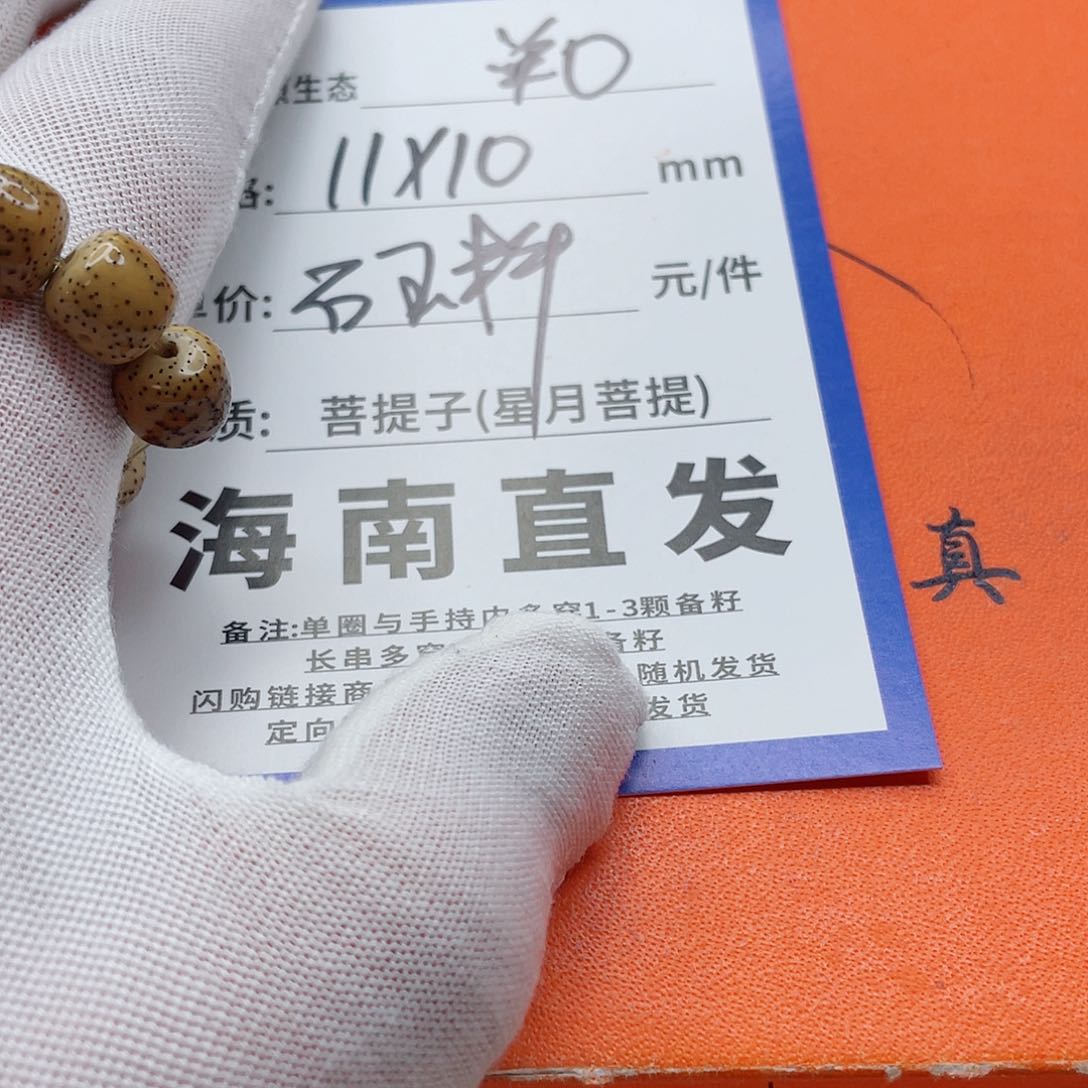 生态 单口
格: 11X10 mm
单价: 石玉料 元/件
质: 菩提子(星月菩提)
海南直发
真
备注:单圈与手持内多穿1-3颗备籽
长串多穿 备籽
闪购链接商 随机发货
定向 发货